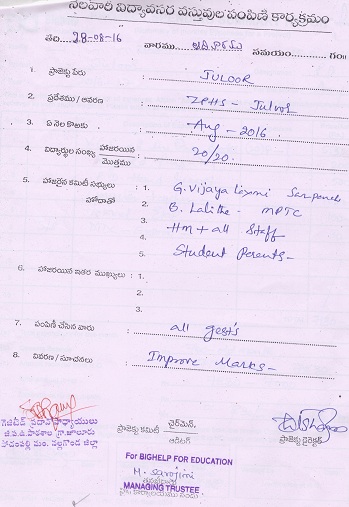 నెలవారీ విద్యావసర వస్తువుల పంపిణీ కార్యక్రమం
తేది....28-08-16 వారము.... ఆదివారము సమయం............ గం॥
1. ప్రాజెక్టు పేరు : JULOOR
2. ప్రదేశము / ఆవరణ : ZPHS - Juloor
3. ఏ నెల కొఱకు : Aug - 2016.
4. విద్యార్థుల సంఖ్య హాజరయిన : 20/20.
మొత్తము
5. హాజరైన కమిటీ సభ్యులు : 1. G. Vijaya Laxmi Sarpanch
హోదాతో 2. B. Lalitha - MPTC
3. Hm + all Staff
4.
5. Student Parents -
6. హాజరయిన ఇతర ముఖ్యులు : 1.
2.
3.
7. పంపిణీ చేసిన వారు : all gest's
8. వివరణ / సూచనలు : Improve Marks -
గెజిటెడ్ ప్రధానోపాధ్యాయులు
జి.ప.ఉ.పాఠశాల గ్రా.జూలూరు
పోచంపల్లి మం. నల్గొండ జిల్లా
ప్రాజెక్టు కమిటీ ఛైర్మెన్
ఆడిటర్
ప్రాజెక్టు డైరెక్టర్
For BIGHELP FOR EDUCATION
M. Sarojini
MANAGING TRUSTEE